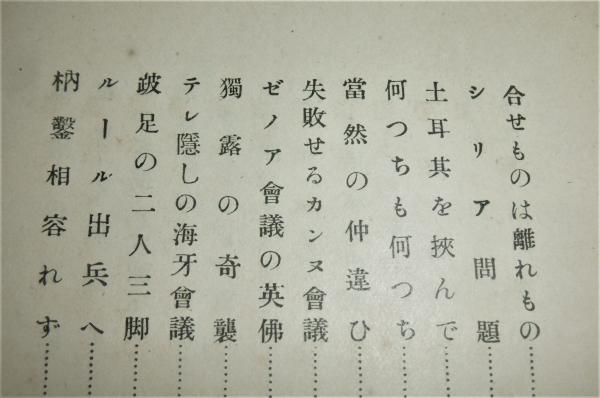 合せものは離れもの
シリア問題
土耳其を挾んで
何つちも何つち
當然の仲違ひ
失敗せるカンヌ會議
ゼノア會議の英佛
獨露の奇襲
テレ隱しの海牙會議
跛足の二人三脚
ルール出兵へ
枘鑿相容れず